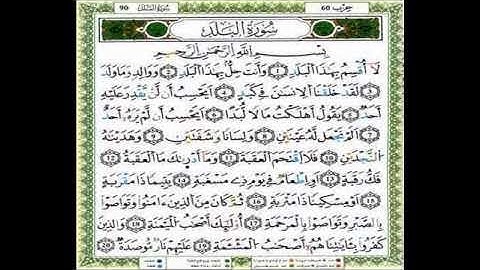 حزب 60
سورة البلد 90
سُورَةُ الْبَلَدِ
بِسْمِ اللَّهِ الرَّحْمَٰنِ الرَّحِيمِ
لَا أُقْسِمُ بِهَٰذَا الْبَلَدِ ۝١ وَأَنتَ حِلٌّ بِهَٰذَا الْبَلَدِ ۝٢ وَوَالِدٍ وَمَا وَلَدَ
۝٣ لَقَدْ خَلَقْنَا الْإِنسَٰنَ فِي كَبَدٍ ۝٤ أَيَحْسَبُ أَن لَّن يَقْدِرَ عَلَيْهِ
أَحَدٌ ۝٥ يَقُولُ أَهْلَكْتُ مَالًا لُّبَدًا ۝٦ أَيَحْسَبُ أَن لَّمْ يَرَهُ أَحَدٌ
۝٧ أَلَمْ نَجْعَل لَّهُ عَيْنَيْنِ ۝٨ وَلِسَانًا وَشَفَتَيْنِ ۝٩ وَهَدَيْنَٰهُ
النَّجْدَيْنِ ۝١٠ فَلَا اقْتَحَمَ الْعَقَبَةَ ۝١١ وَمَا أَدْرَىٰكَ مَا الْعَقَبَةُ ۝١٢
فَكُّ رَقَبَةٍ ۝١٣ أَوْ إِطْعَٰمٌ فِي يَوْمٍ ذِي مَسْغَبَةٍ ۝١٤ يَتِيمًا ذَا مَقْرَبَةٍ
۝١٥ أَوْ مِسْكِينًا ذَا مَتْرَبَةٍ ۝١٦ ثُمَّ كَانَ مِنَ الَّذِينَ ءَامَنُوا وَتَوَاصَوْا
بِالصَّبْرِ وَتَوَاصَوْا بِالْمَرْحَمَةِ ۝١٧ أُولَٰئِكَ أَصْحَٰبُ الْمَيْمَنَةِ ۝١٨ وَالَّذِينَ
كَفَرُوا بِـَٔايَٰتِنَا هُمْ أَصْحَٰبُ الْمَشْـَٔمَةِ ۝١٩ عَلَيْهِمْ نَارٌ مُّؤْصَدَةٌ ۝٢٠